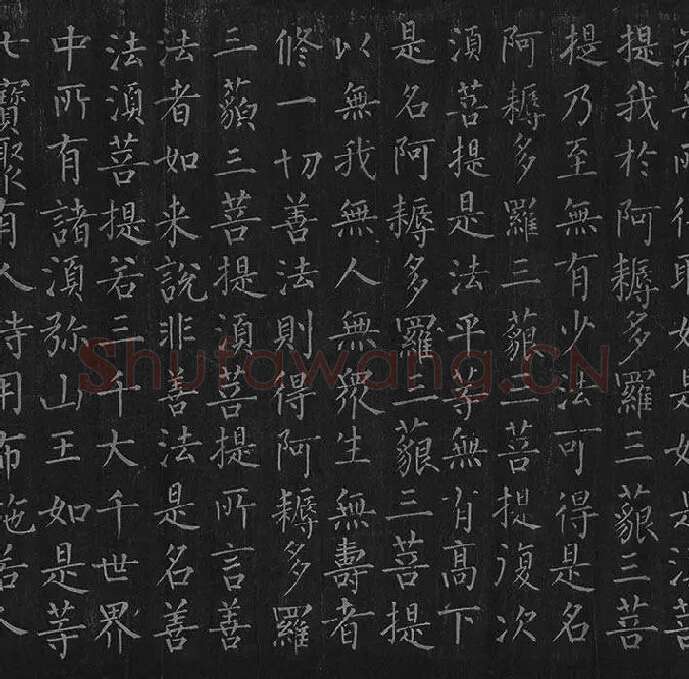 為無所得耶如是如是須菩
提我於阿耨多羅三藐三菩
提乃至無有少法可得是名
阿耨多羅三藐三菩提復次
須菩提是法平等無有高下
是名阿耨多羅三藐三菩提
以無我無人無衆生無壽者
修一切善法則得阿耨多羅
三藐三菩提須菩提所言善
法者如来說非善法是名善
法須菩提若三千大千世界
中所有諸須弥山王如是等
七寶聚有人持用布施若人
Shufawang.CN